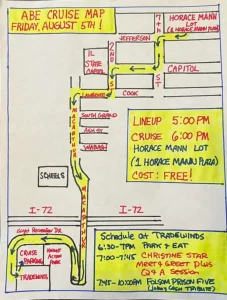 ABE CRUISE MAP
FRIDAY, AUGUST 5TH!
7TH
ST
HORACE MANN
LOT
(1 HORACE MANN PLAZA)
JEFFERSON
2ND
IL
STATE
CAPITOL
CAPITOL
LAWRENCE
COOK
SOUTH GRAND
ASH ST
WABASH
MACARTHUR
LINEUP 5:00 PM
CRUISE 6:00 PM
HORACE MANN
LOT
(1 HORACE MANN PLAZA)
COST: FREE!
SCHEELS
MACARTHUR
I-72
I-72
CRUISE
PARKING
ACTION
PARK
TRADEWINDS
Schedule at TRADEWINDS
6:30-7PM PARK & EAT
7:00-7:45 CHRISTINE STAR
MEET & GREET plus
Q & A SESSION
7:45-10:00PM FOLSOM PRISON FIVE
(JOHNNY CASH TRIBUTE)